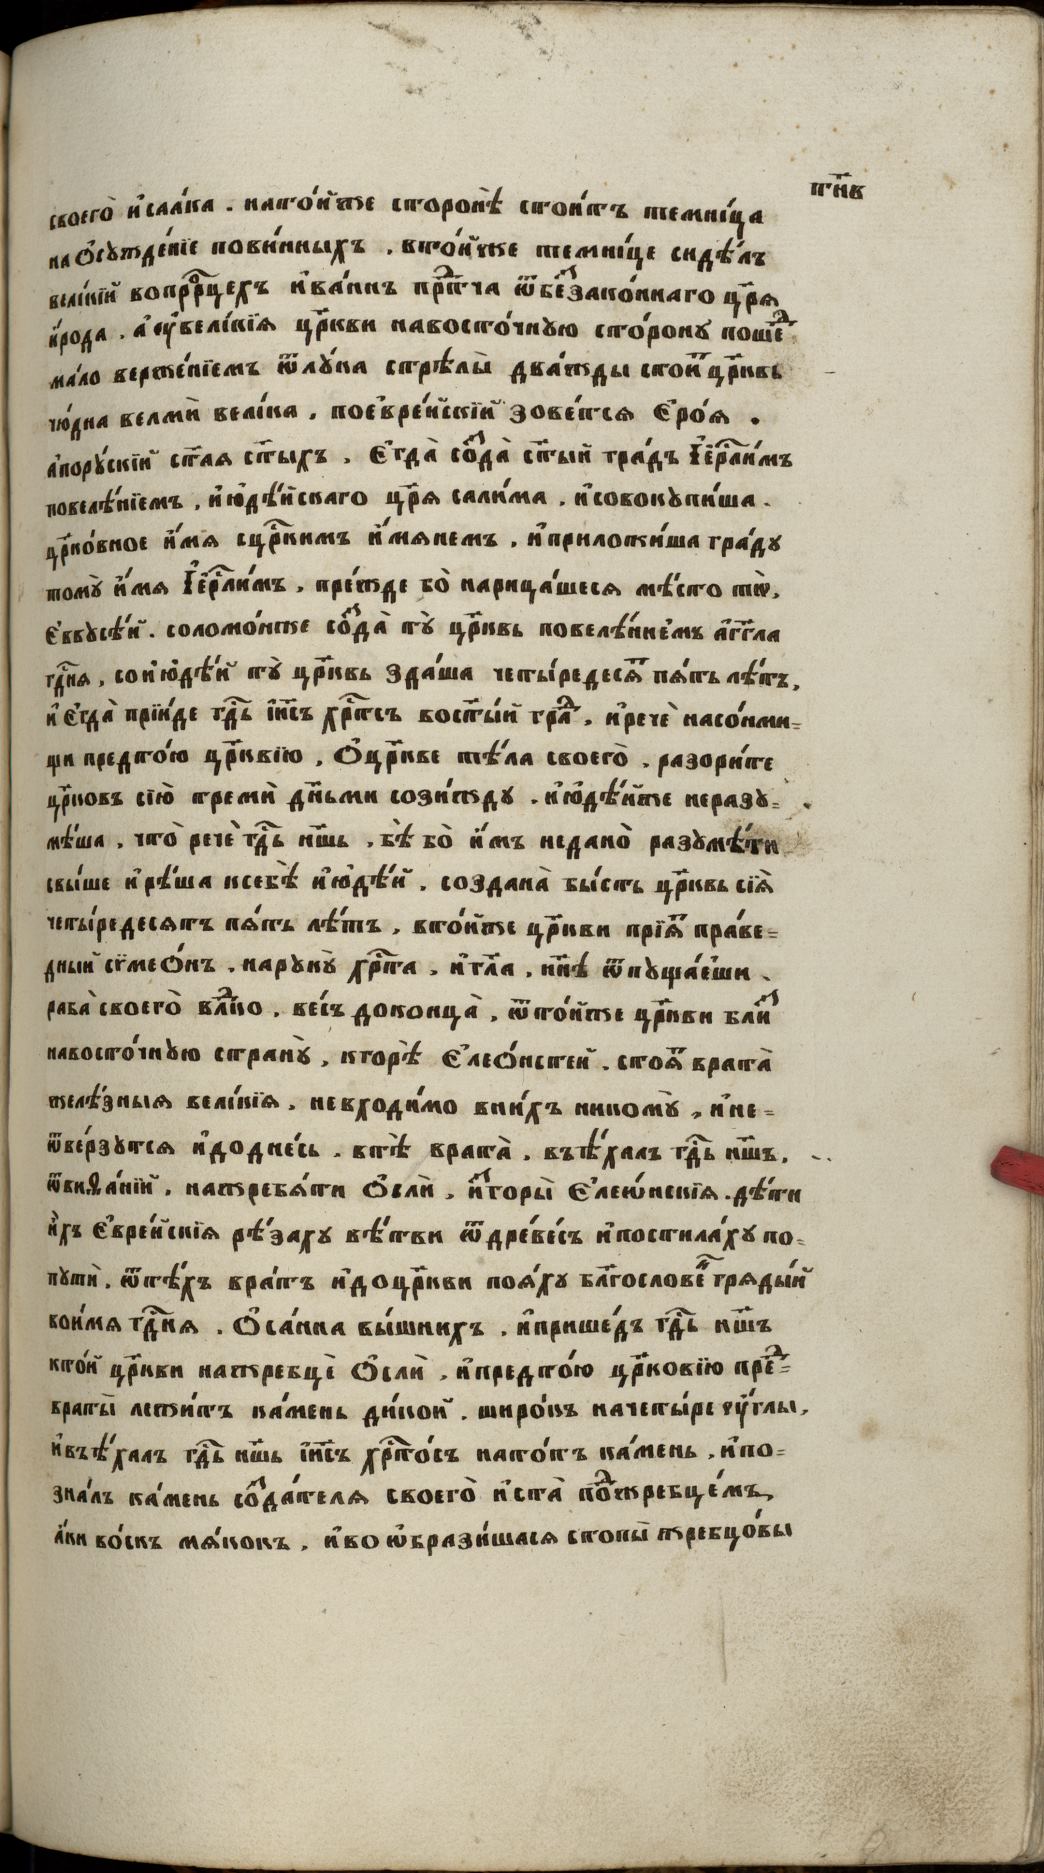 пн҃в
своего̀ и҆саа́ка . нато́йже сторонѣ̀ стои́тъ темни́ца
на ѻ҆сꙋжде́нїе пови́нныхъ . вто́йже темни́це сидѣ́лъ
вели́кїй вопрⷪ҇рцехъ и҆ва́ннъ прⷣт҇ча ѿ беꙁако́ннаго цр҃ѧ
и҆́рода . а҆ ѹ҆вели́кїѧ цр҃кви навосто́чнꙋю сто́ронꙋ поше́ⷣ
ма́ло верже́нїемъ ѿ лꙋ́ка стрѣлы̀ два́жды стои́ⷮ цр҃квь
чю́дна велмѝ вели́ка . поевре́йскїй ꙁове́тсѧ Є҆ро́ѧ .
а҆порꙋ́скїй ст҃аѧ ст҃ыхъ . Є҆гда̀ соⷥда̀ ст҃ый гра́дъ І҆ер҇ⷭли́мъ
повелѣ́нїемъ , и҆ю҆дѣ́йскаго цр҃ѧ сали́ма . и҆совокꙋпи́ша .
цр҃ко́вное и҆́мѧ сцр҇ⷭкимъ и҆́мѧнемъ . и҆приложи́ша гра́дꙋ
томꙋ̀ и҆́мѧ І҆ер҇ⷭли́мъ . пре́жде бо̀ нарица́шесѧ мѣ́сто то̀ .
Є҆ввꙋсѣ́й . соломо́нже соⷥда̀ тꙋ̀ цр҃квь повелѣ́нїемъ а҆́гг҃ла
гдⷭ҇нѧ , сои҆ю҆дѣ́й тꙋ̀ цр҃квь ꙁда́ша четы́редесѧⷮ пѧ́ть лѣ́тъ .
и҆ Є҆гда̀ прїи́де гдⷭ҇ь і҆и҃съ хрⷭ҇тсъ вост҃ы́й гра́ⷣ . и҆речѐ насо́нми=
щи предто́ю цр҃квїю , Ѻ҆цр҃кве тѣ́ла своего̀ . раꙁори́те
цр҃ковъ сїю̀ тремѝ дн҃ьми соꙁи́ждꙋ . и҆ю҆дѣ́йже нераꙁꙋ=
мѣ́ша , что̀ речѐ гдⷭ҇ь нш҃ь . бѣ̀ бо̀ и҆́мъ недано̀ раꙁꙋмѣ́ти
свы́ше и҆рѣ́ша ксебѣ̀ и҆ю҆дѣ́й . соꙁдана̀ бы́сть цр҃квь сїѧ̀
четы́редесѧтъ пѧ́ть лѣ́тъ , вто́йже цр҃кви прїѧ́ⷮ пра́ве=
дный сїмео́нъ . нарꙋкꙋ̀ хрⷭ҇та . и҆гл҃а . нн҃ѣ ѿпꙋща́еши
раба̀ своего̀ влⷣко . весь доконца̀ . ѿто́йже цр҃кви блиⷥ
навосто́чнꙋю странꙋ̀ , кгорѣ̀ Є҆леѻ́нстей . стоѧ́ⷮ врата̀
желѣ́ꙁныѧ вели́кїѧ . невходи́мо вни́хъ никомꙋ̀ . и҆не=
ѿве́рꙁꙋтсѧ и҆до дне́сь . втѣ̀ врата̀ . въѣ́халъ гдⷭ҇ь нш҃ъ .
ѿ виѳа́нїй . нажребѧ́ти ѻ҆слѝ , и҆ⷥгоры̀ Є҆леѡ́нскїѧ . дѣ́ти
и҆́хъ Є҆вре́йскїѧ рѣ́ꙁахꙋ вѣ́тви ѿ дре́весъ и҆постила́хꙋ по=
пꙋтѝ . ѿ тѣ́хъ вра́тъ и҆доцр҃кви поѧ́хꙋ бл҃гослове́ⷩ грѧды́й
воимѧ гдⷭ҇нѧ . Ѻ҆са́нна вы́шнихъ . и҆прише́дъ гдⷭ҇ь нш҃ъ
кто́й цр҃кви нажребцѐ ѻ҆слѝ , и҆предто́ю цр҃ковїю пре́ⷣ=
враты̀ лежи́тъ ка́мень ди́кой . широ́къ начеты́ре ѹ҆́глы .
и҆въѣ́халъ гдⷭ҇ь нш҃ь і҆и҃съ хрⷭ҇то́съ нато́тъ ка́мень . и҆по=
ꙁна́лъ ка́мень соⷥда́телѧ своего̀ и҆ста̀ поⷣжребце́мъ ,
а҆́ки во́скъ мѧ́кокъ . и҆во ѡ҆браꙁи́шасѧ стопы̀ жребцо́вы